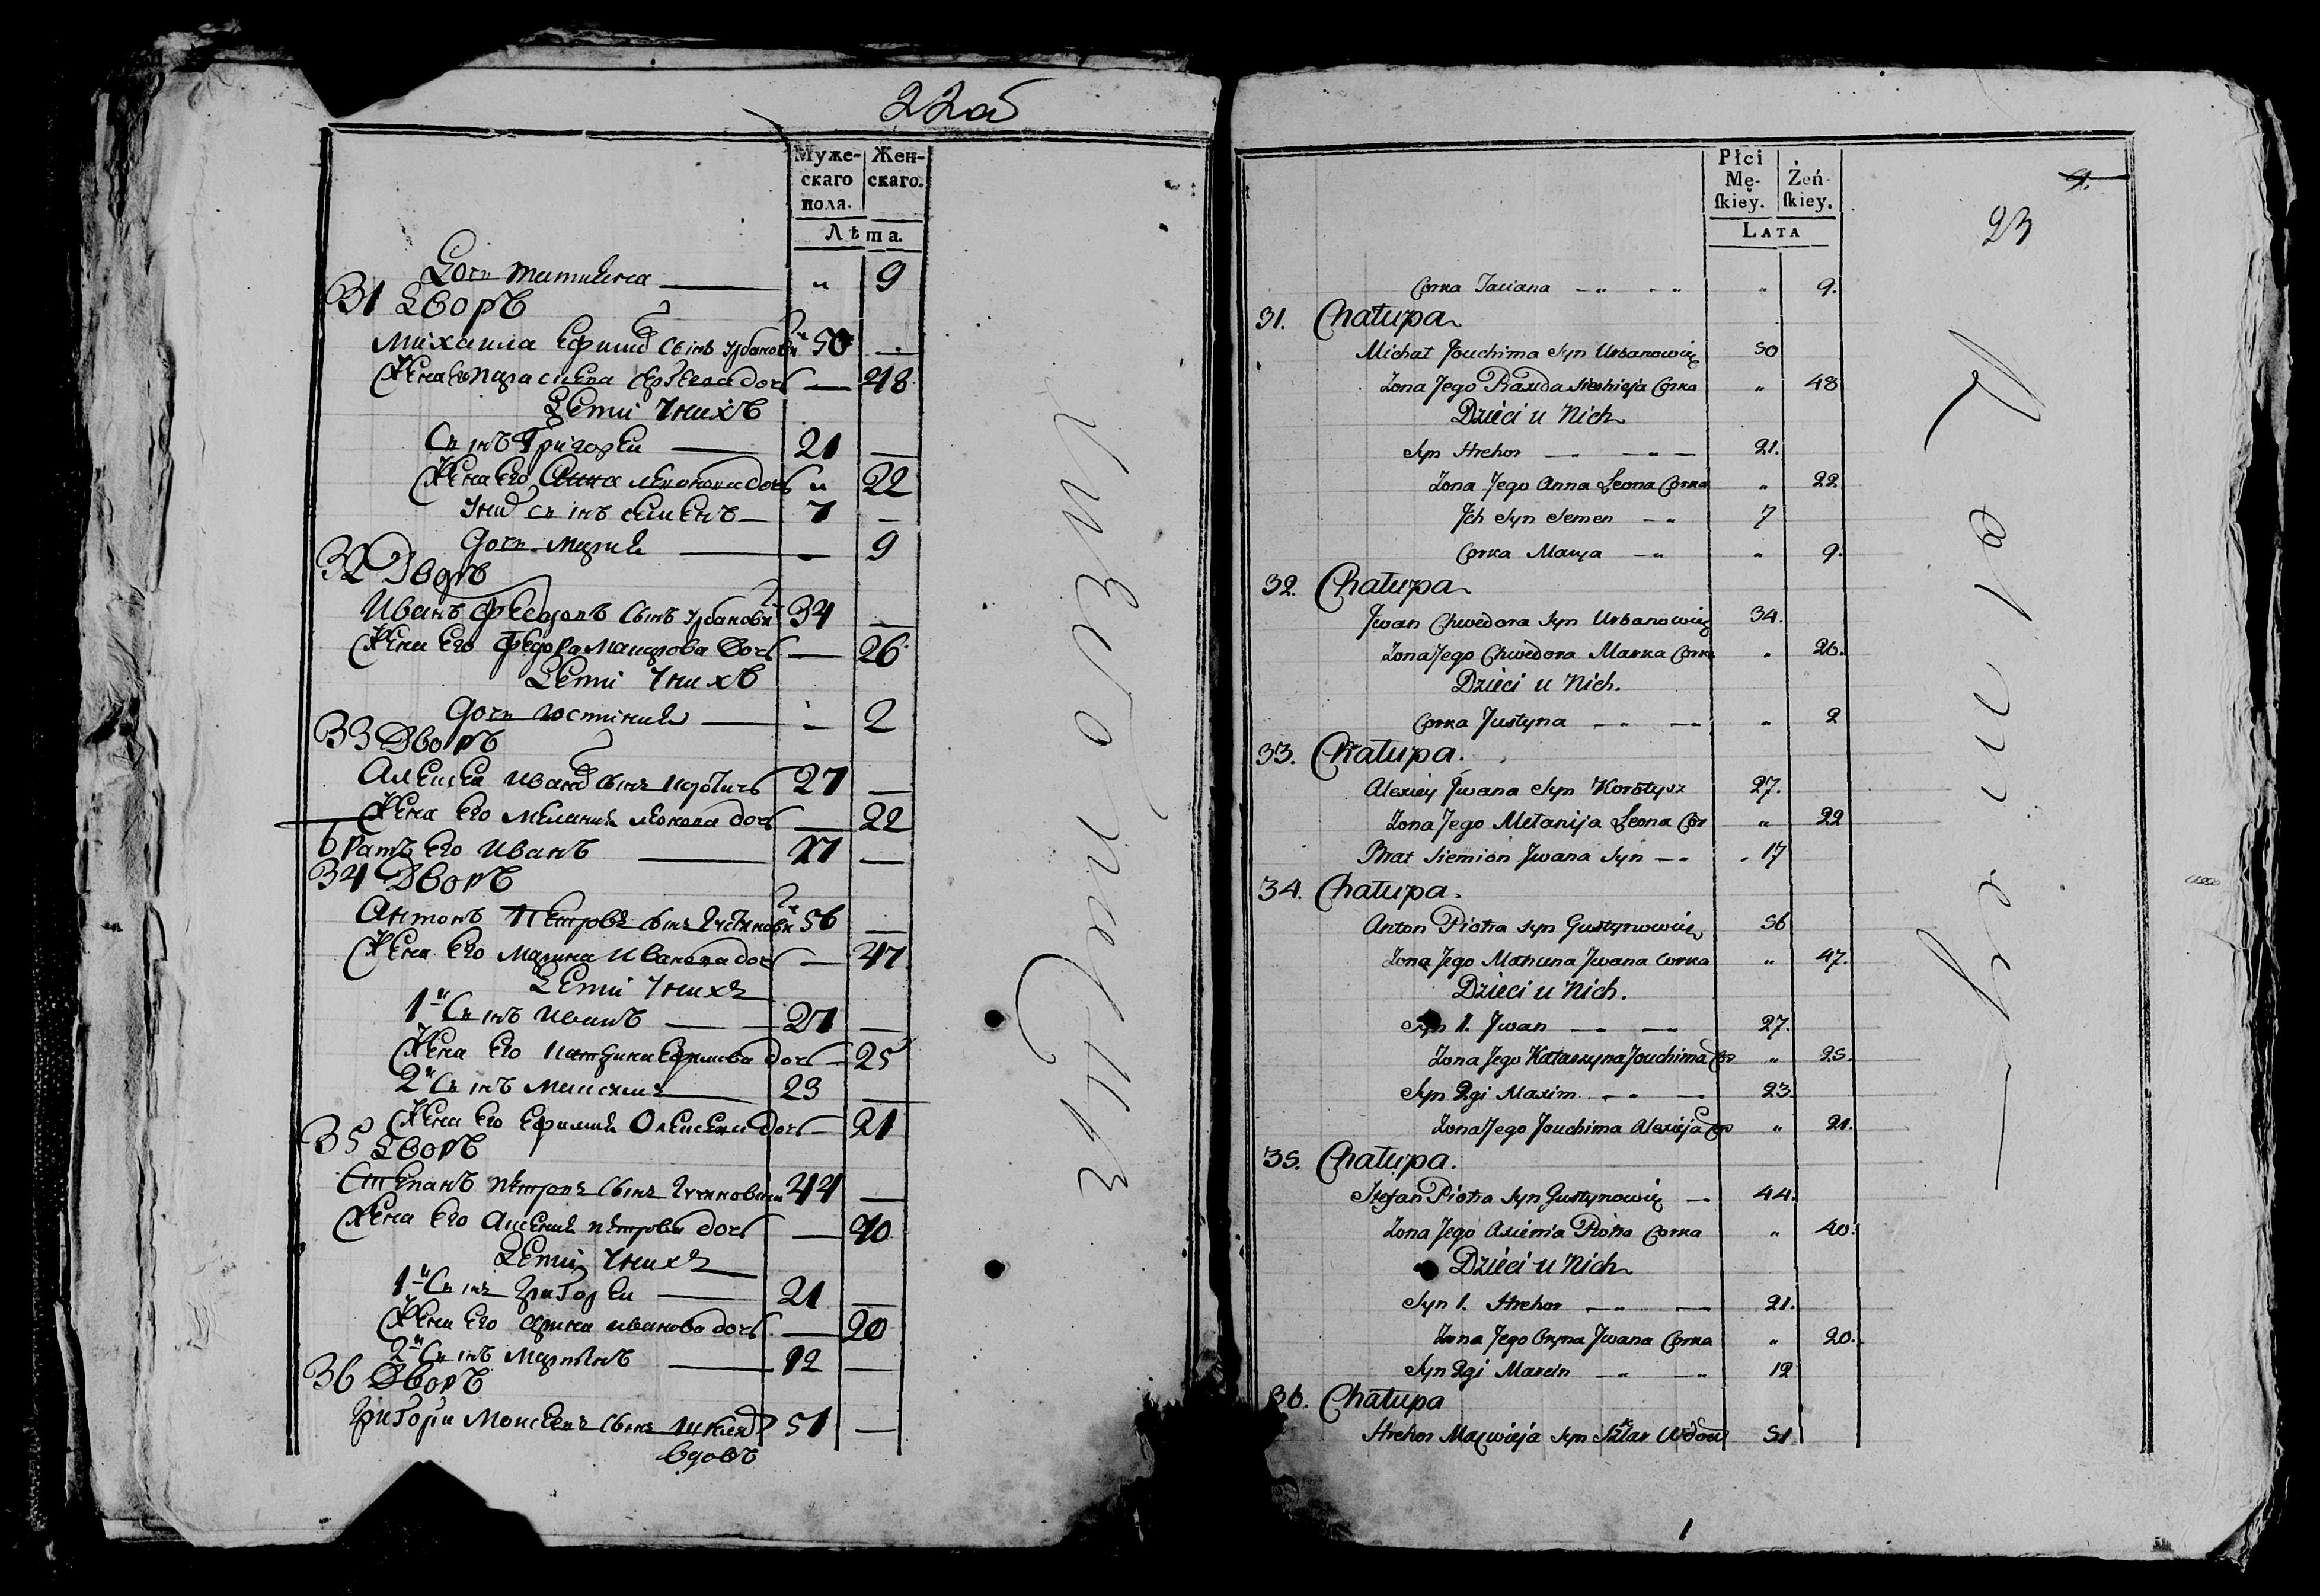 22об
Муже- Жен-
скаго скаго.
пола.
Лѣта.
Дочь татияна — „ 9
31 Дворъ
Михаила Ефимов сынъ Урбанович 50 —
Жена Ево параскева дочь — 48
Дети Унихъ
Сынъ Григореи — 21 —
Жена Ево Анна леонова дочь „ 22
Уних сынъ семенъ — 7 —
дочь мария — — 9
32 Дворъ
Иванъ Федоровъ сынъ Урбанович 34 —
Жена Ево Федора Маркова дочь — 26
Дети Унихъ
дочь юстиния — — 2
33 Дворъ
Алексеи Иванов сынъ 27 —
Жена Ево Мелания леонова дочь — 22
братъ Ево Иванъ — 17 —
34 Дворъ
Антонъ Петровъ сынъ 56 —
Жена Ево Марина Иванова дочь — 47
Дети Унихъ
1й Сынъ Иванъ — 27 —
Жена Ево Катерина Ефимова дочь — 25
2й Сынъ Максимъ 23 —
Жена Ево Ефимия Олексеева дочь — 21
35 Дворъ
Степанъ Петровъ сынъ 44 —
Жена Ево Аксения петрова дочь — 40
Дети Унихъ
1й Сынъ Григореи — 21 —
Жена Ево Арина иванова дочь — 20
2й Сынъ Мартинъ — 12 —
36 Дворъ
Григори Моисеевъ сынъ 51 —
вдовъ
Płci
Mę- Żeń-
ſkiey. ſkiey.
LATA
9.
23
Corka Taciana „ 9.
31. Chałupa
Michał Jouchima Syn Urbanowicz 50
Zona Jego Praxeda Corka „ 48
Dzieci u Nich
Syn Hrehor 21.
Zona Jego Anna Leona Corka „ 22
Jch Syn Semen 7
Corka Marya „ 9.
32. Chałupa
Jwan Chwedora Syn Urbanowicz 34.
Zona Jego Chwedora Marka Corka „ 26.
Dzieci u Nich.
Corka Justyna „ 2
33. Chałupa.
Alexiey Jwana Syn Korotysz 27.
Zona Jego Mełanija Leona Cor „ 22
Brat Siemion Jwana Syn 17
34. Chałupa.
Anton Piotra Syn Gustynowicz 56
Zona Jego Maruna Jwana Corka „ 47.
Dzieci u Nich.
Syn 1. Jwan 27.
Zona Jego Katarzyna Jouchima Cor „ 25.
Syn 2gi Maxim 23.
Zona Jego Jouchima Alexieja Cor „ 21.
35. Chałupa.
Stefan Piotra Syn Gustynowicz 44.
Zona Jego Axienia Piotra Corka „ 40.
Dzieci u Nich
Syn 1. Hrehor 21.
Zona Jego Oryna Jwana Corka „ 20.
Syn 2gi Marcin 12
36. Chałupa
Hrehor Syn Wdow 51
1